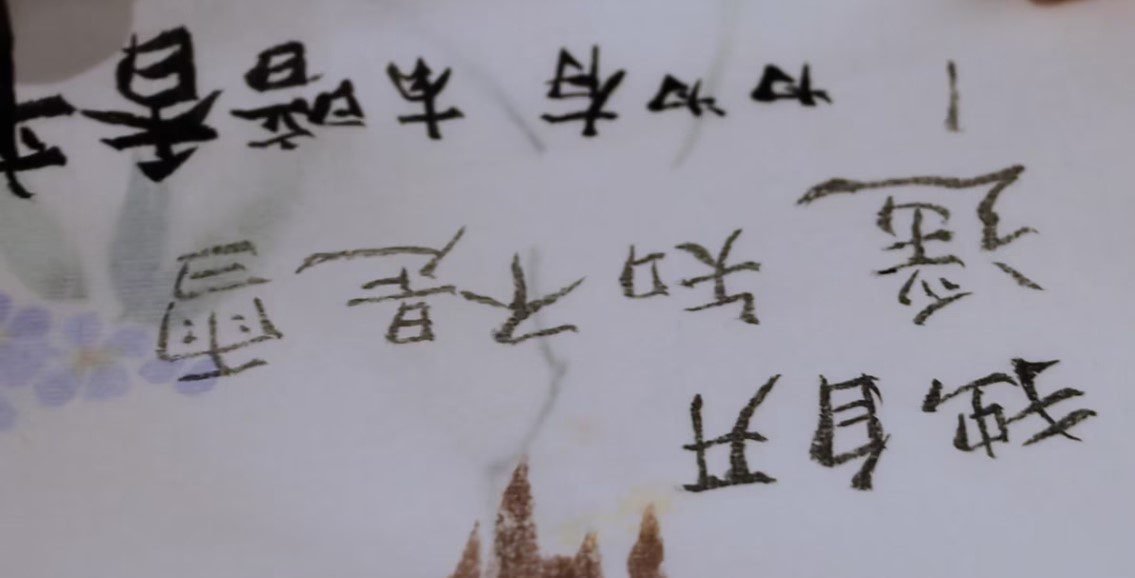 独自开
遥知不是雪
为为有有暗香